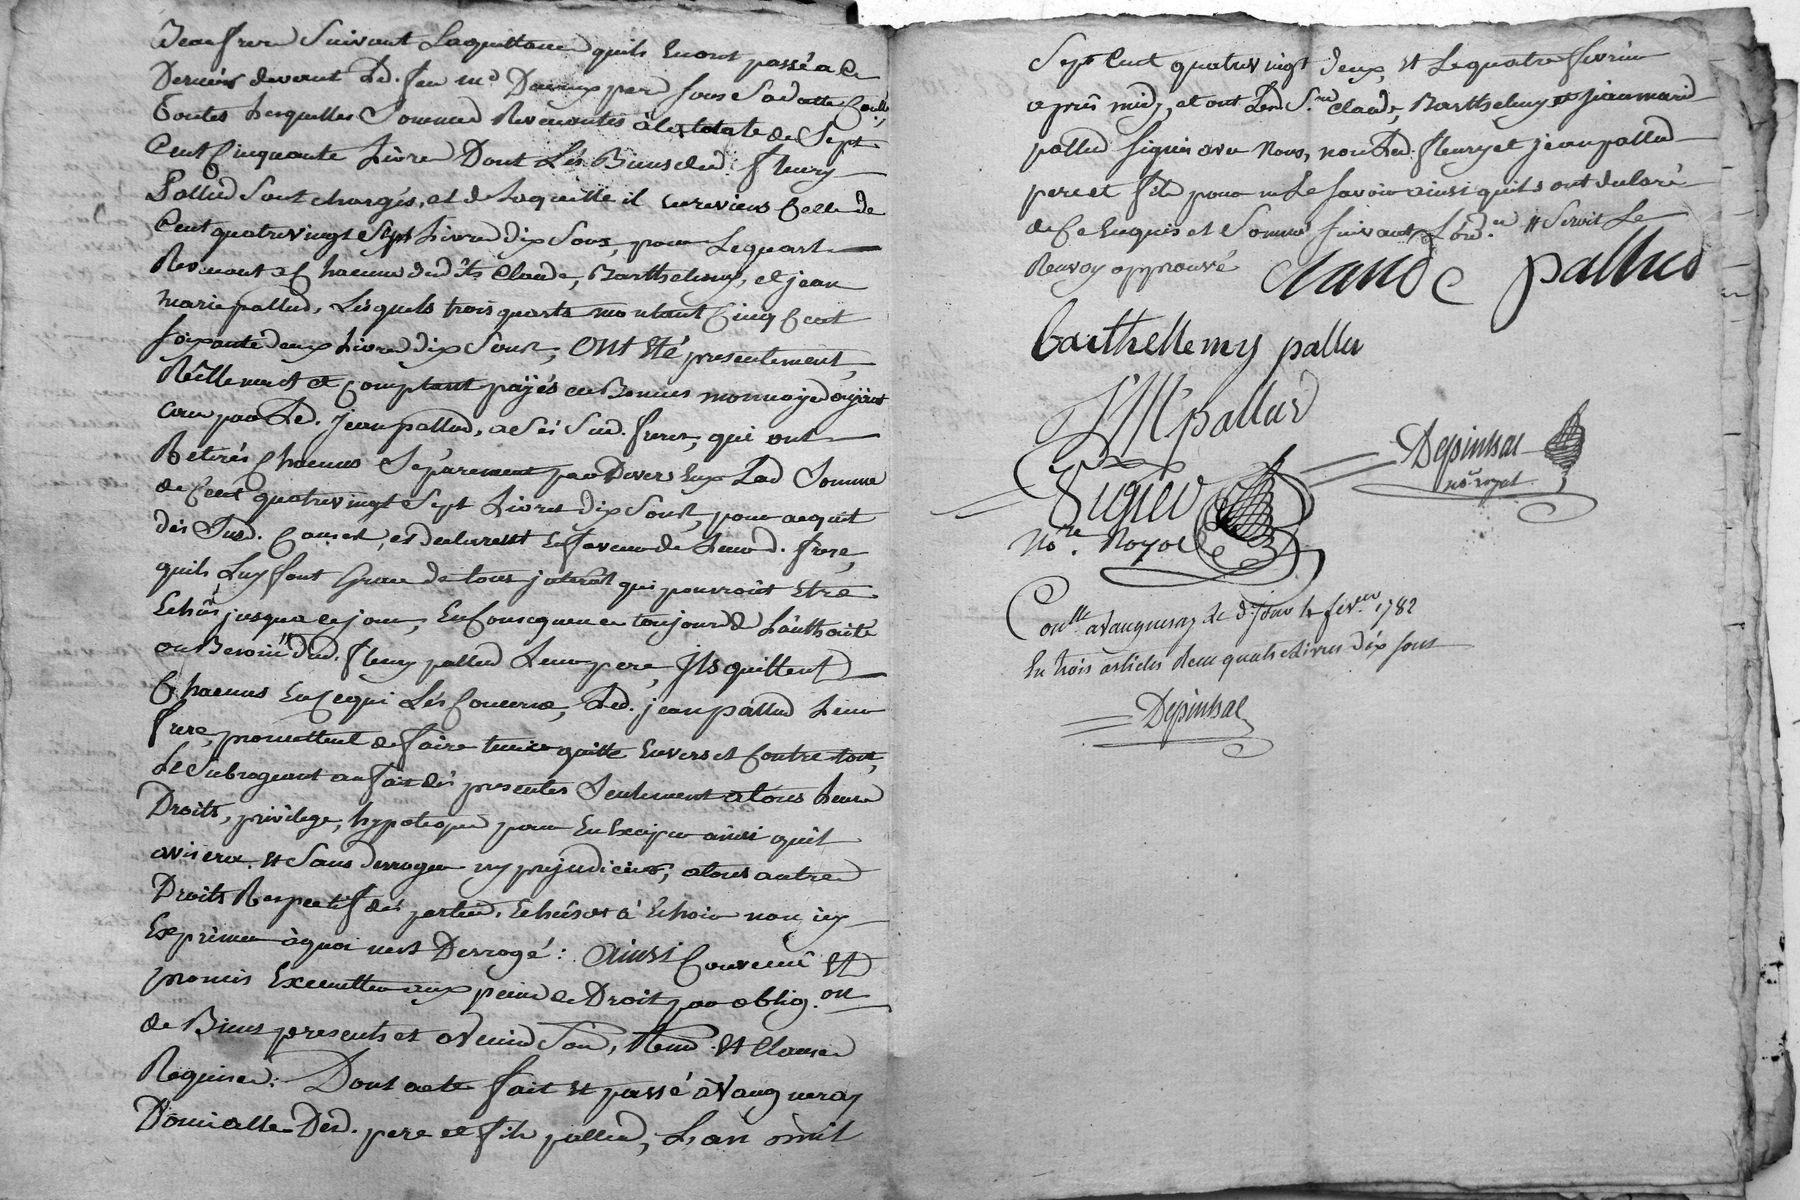 Beaufrere Suivant Laquittance quils Enont passé a Ce
Dernier devant Led. feu md. pere Sous Sadatte
toutes Lesquelles Sommes Revenantes à la totale de Sept
Cent Cinquante Livres Dont Les Biens dud. fleury
Pallud Sont chargés, et de Laquelle il en reviens Celle de
Cent quatrevingt Sept Livres dix Sous, pour Lequart
Revenant a Chacun desdits Claude, Barthelemy, et jean
marie pallud, Lesquels trois quarts montant Cinq Cent
soixante deux Livres dix Sous, ONt Eté presentement,
Réellement et Comptant payés en Bonnes monnoyes ayant
cour par Led. jean pallud, a Sés Sud. freres, qui ont
Retirés Chacuns Séparement par Devers Eux Lad Somme
de Cent quatrevingt Sept Livres dix Sous, pour acquit
dés Susd. Causes, et declarent En faveur de Leurd. frere,
quils Luy font Grace de tous jnterêt qui pourroient Etre
Echus jusqua ce jour, En Consequence toujours de Lauthorité
ou Besoin dud. fleury pallud Leur pere, jls quittent
Chacuns En Cequi Les Concerne, Led. jean pallud Leur
frere, promettent de faire tenir quitte Envers et Contre tous,
Le Subrogeant au fait dés presentes Seulement atous Leurs
Droits, privilege, hypoteque pour En Exciper ainsi quil
avisera. Et Sans derroger ny prejudicier, atous autres
Droits Respectif dés parties, Echus et à Echoir non icy
Exprimer àquoi nest Derrogé: ainsi Convenu Et
promis Executter aux peine de Droit par oblig.on
de Biens presents et avenir Soû, Renon. Et Clauses
Requises. Dont acte fait Et passé à Vaugneray
Domicille Desd. pere et fils pallud, Lan mil
Sept Cent quatrevingt deux, Et Lequatre fevrier
après midy, et ont Lesd. Srs. Claude, Barthelemy et jean marie
pallud signés avec Nous, non Led. fleury et jean pallud
pere et fils pour ne Le savoir ainsi quils ont declaré
de Ce Enquis et Sommé suivant Lord.ce
Renvoy approuvé
claude pallud
barthellemy pallu
J M pallud
Vigier
No.re Royal
Depinhac
nore royal
Conllé a Vaugneray Le d. jour 4 fevrer 1782
En trois articles Recu quatre Livres dix sous
Depinhac